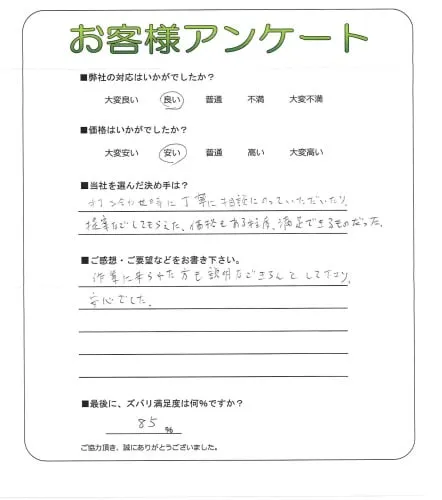 お客様アンケート
■弊社の対応はいかがでしたか？
大変良い 良い 普通 不満 大変不満
■価格はいかがでしたか？
大変安い 安い 普通 高い 大変高い
■当社を選んだ決め手は？
打ち合わせ時に丁寧に相談にのっていただいたり、
提案などしてもらえた。価格もある程度、満足できるものだった。
■ご感想・ご要望などをお書き下さい。
作業に来られた方も説明などきちんとしており、
安心でした。
■最後に、ズバリ満足度は何％ですか？
85 ％
ご協力頂き、誠にありがとうございました。